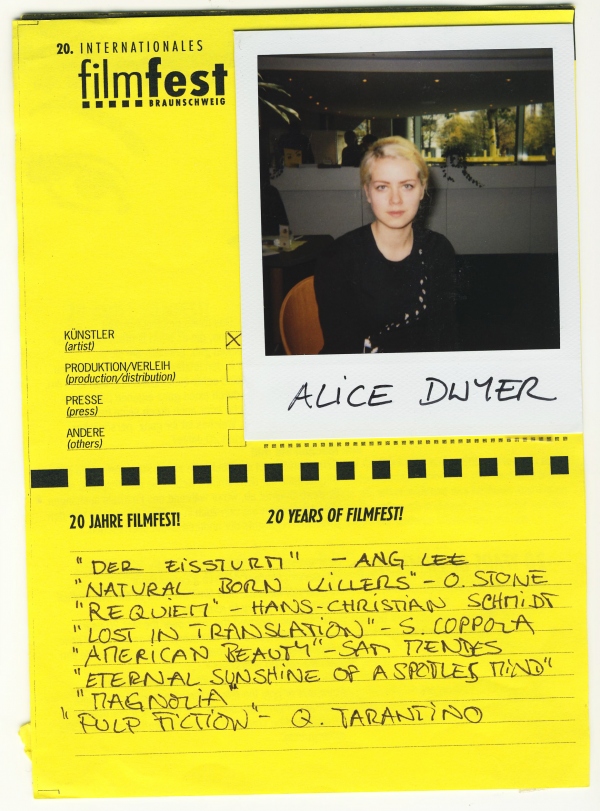 20. INTERNATIONALES
filmfest
BRAUNSCHWEIG
KÜNSTLER
(artist)
PRODUKTION/VERLEIH
(production/distribution)
PRESSE
(press)
ANDERE
(others)
ALICE DWYER
20 JAHRE FILMFEST!
20 YEARS OF FILMFEST!
"DER EISSTURM" - ANG LEE
"NATURAL BORN KILLERS" - O. STONE
"REQUIEM" - HANS-CHRISTIAN SCHMIDT
"LOST IN TRANSLATION" - S. COPPOLA
"AMERICAN BEAUTY" - SAM MENDES
"ETERNAL SUNSHINE OF A SPOTLES MIND"
"MAGNOLIA"
"PULP FICTION" - Q. TARANTINO